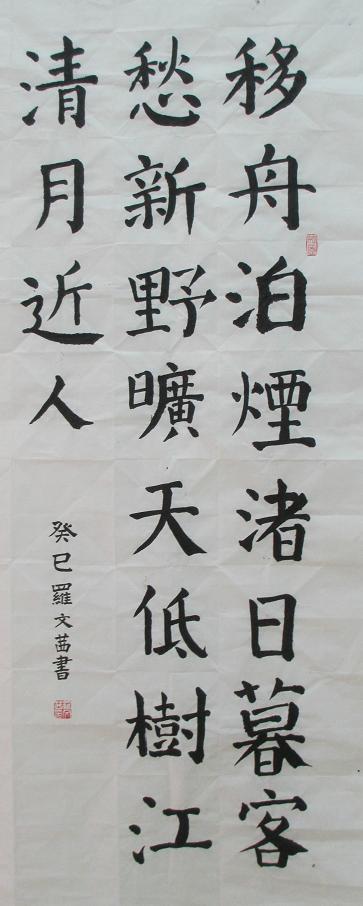 移舟泊煙渚日暮客
愁新野曠天低樹江
清月近人
癸巳羅文茜書